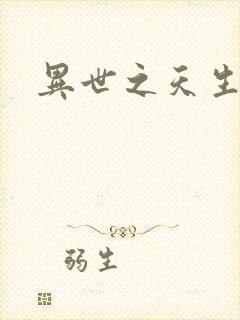 異世之天生
弱生